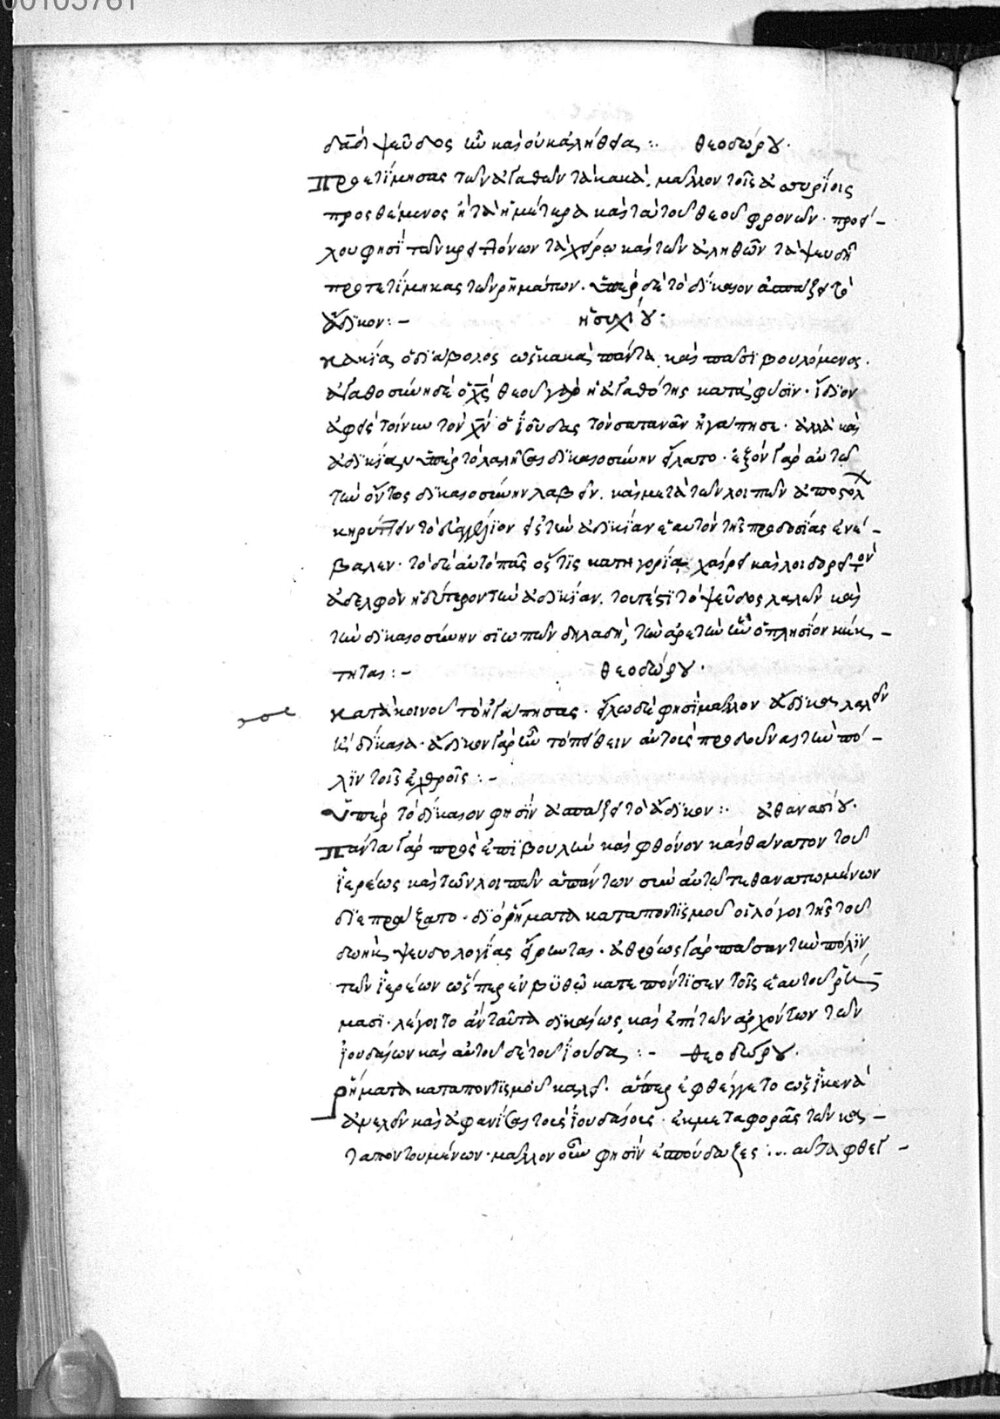 00105761
ψεῦδος ὂν καὶ οὐκ ἀλήθεια : θεοδώρου.
Προετίμησας τῶν ἀγαθῶν τὰ κακά, μᾶλλον τοῖς ἀσσυρίοις
προσθέμενος ἢ τὰ ἡμέτερα καὶ τὰ τοῦ θεοῦ φρονῶν.
φησὶ τῶν κρειττόνων τὰ χείρω καὶ τῶν ἀληθῶν τὰ ψευδῆ
προτετίμηκας τῶν ῥημάτων. ὑπὲρ δὲ τὸ δίκαιον ἀντὶ τὸ
ἄδικον :- ἡσυχίου.
κακίας ὁ διάβολος ὡς κακὰ πάντα καὶ πᾶσι βουλόμενος.
ἀγαθοσύνη δὲ ὁ χς θεοῦ γὰρ ἡ ἀγαθότης κατὰ φύσιν ἴδιον
ἀφεὶς τοίνυν τὸν χν ὁ ἰούδας τὸν σατανᾶν ἠγάπησε. ἀλλὰ καὶ
ἀδικίαν ὑπὲρ τὸ λαλῆσαι δικαιοσύνην εἵλατο. ἐξὸν γὰρ αὐτῷ
τὴν ὄντως δικαιοσύνην λαβεῖν. καὶ μετὰ τῶν λοιπῶν ἀποστόλ
κηρύττειν τὸ εὐαγγέλιον εἰς τὴν ἀδικίαν ἑαυτὸν τῆς προδοσίας ἐνέ-
βαλεν. τὸ δὲ αὐτὸ πᾶς ὅστις κατηγορίᾳ χαίρει καὶ λοιδορεῖ τὸν
ἀδελφὸν ἢ δεύτερον τὴν ἀδικίαν. τουτέστι τὸ ψεῦδος λαλῶν καὶ
τὴν δικαιοσύνην σιωπῶν δηλαδή, τὴν ἀρετὴν ἣν ὁ πλησίον κέκ-
τηται :- θεοδώρου.
κατὰ κοινοῦ τὸ ἠγάπησας. φησὶ μᾶλλον ἄδικα λαλεῖν
ἢ δίκαια. ἄδικον γὰρ ἦν τὸ πείθειν αὐτοὺς προδοῦναι τὴν πό-
λιν τοῖς ἐχθροῖς :-
Ὑπὲρ τὸ δίκαιον φησὶν τὸ ἄδικον : ἀθανασίου.
Πάντα γὰρ πρὸς ἐπιβουλὴν καὶ φθόνον καὶ θάνατον τοῦ
ἱερέως καὶ τῶν λοιπῶν ἁπάντων σὺν αὐτῷ τεθανατωμένων
διεπράξατο. διὸ ῥήματα καταποντισμοῦ οἱ λόγοι τῆς τοῦ
δωὴκ ψευδολογίας εἴρωνται. ἀθρόως γὰρ πᾶσαν τὴν πόλιν
τῶν ἱερέων ὥσπερ ἐν βυθῷ κατεπόντισεν τοῖς ἑαυτοῦ ῥή-
μασι. λέγοιτο ἂν ταῦτα δικαίως καὶ ἐπὶ τῶν ἀρχόντων τῶν
ἰουδαίων καὶ αὐτοῦ δὲ τοῦ ἰούδα :- θεοδώρου.
Ῥήματα καταποντισμοῦ καλεῖ. ἅπερ ἐφθέγγετο ὡς ἱκανὰ
καὶ ἀφανίσαι τοὺς ἰουδαίους. ἐκ μεταφορᾶς τῶν κα-
ταποντουμένων. μᾶλλον οὖν φησὶν ἐσπούδαζες : ταῦτα φθεγ-